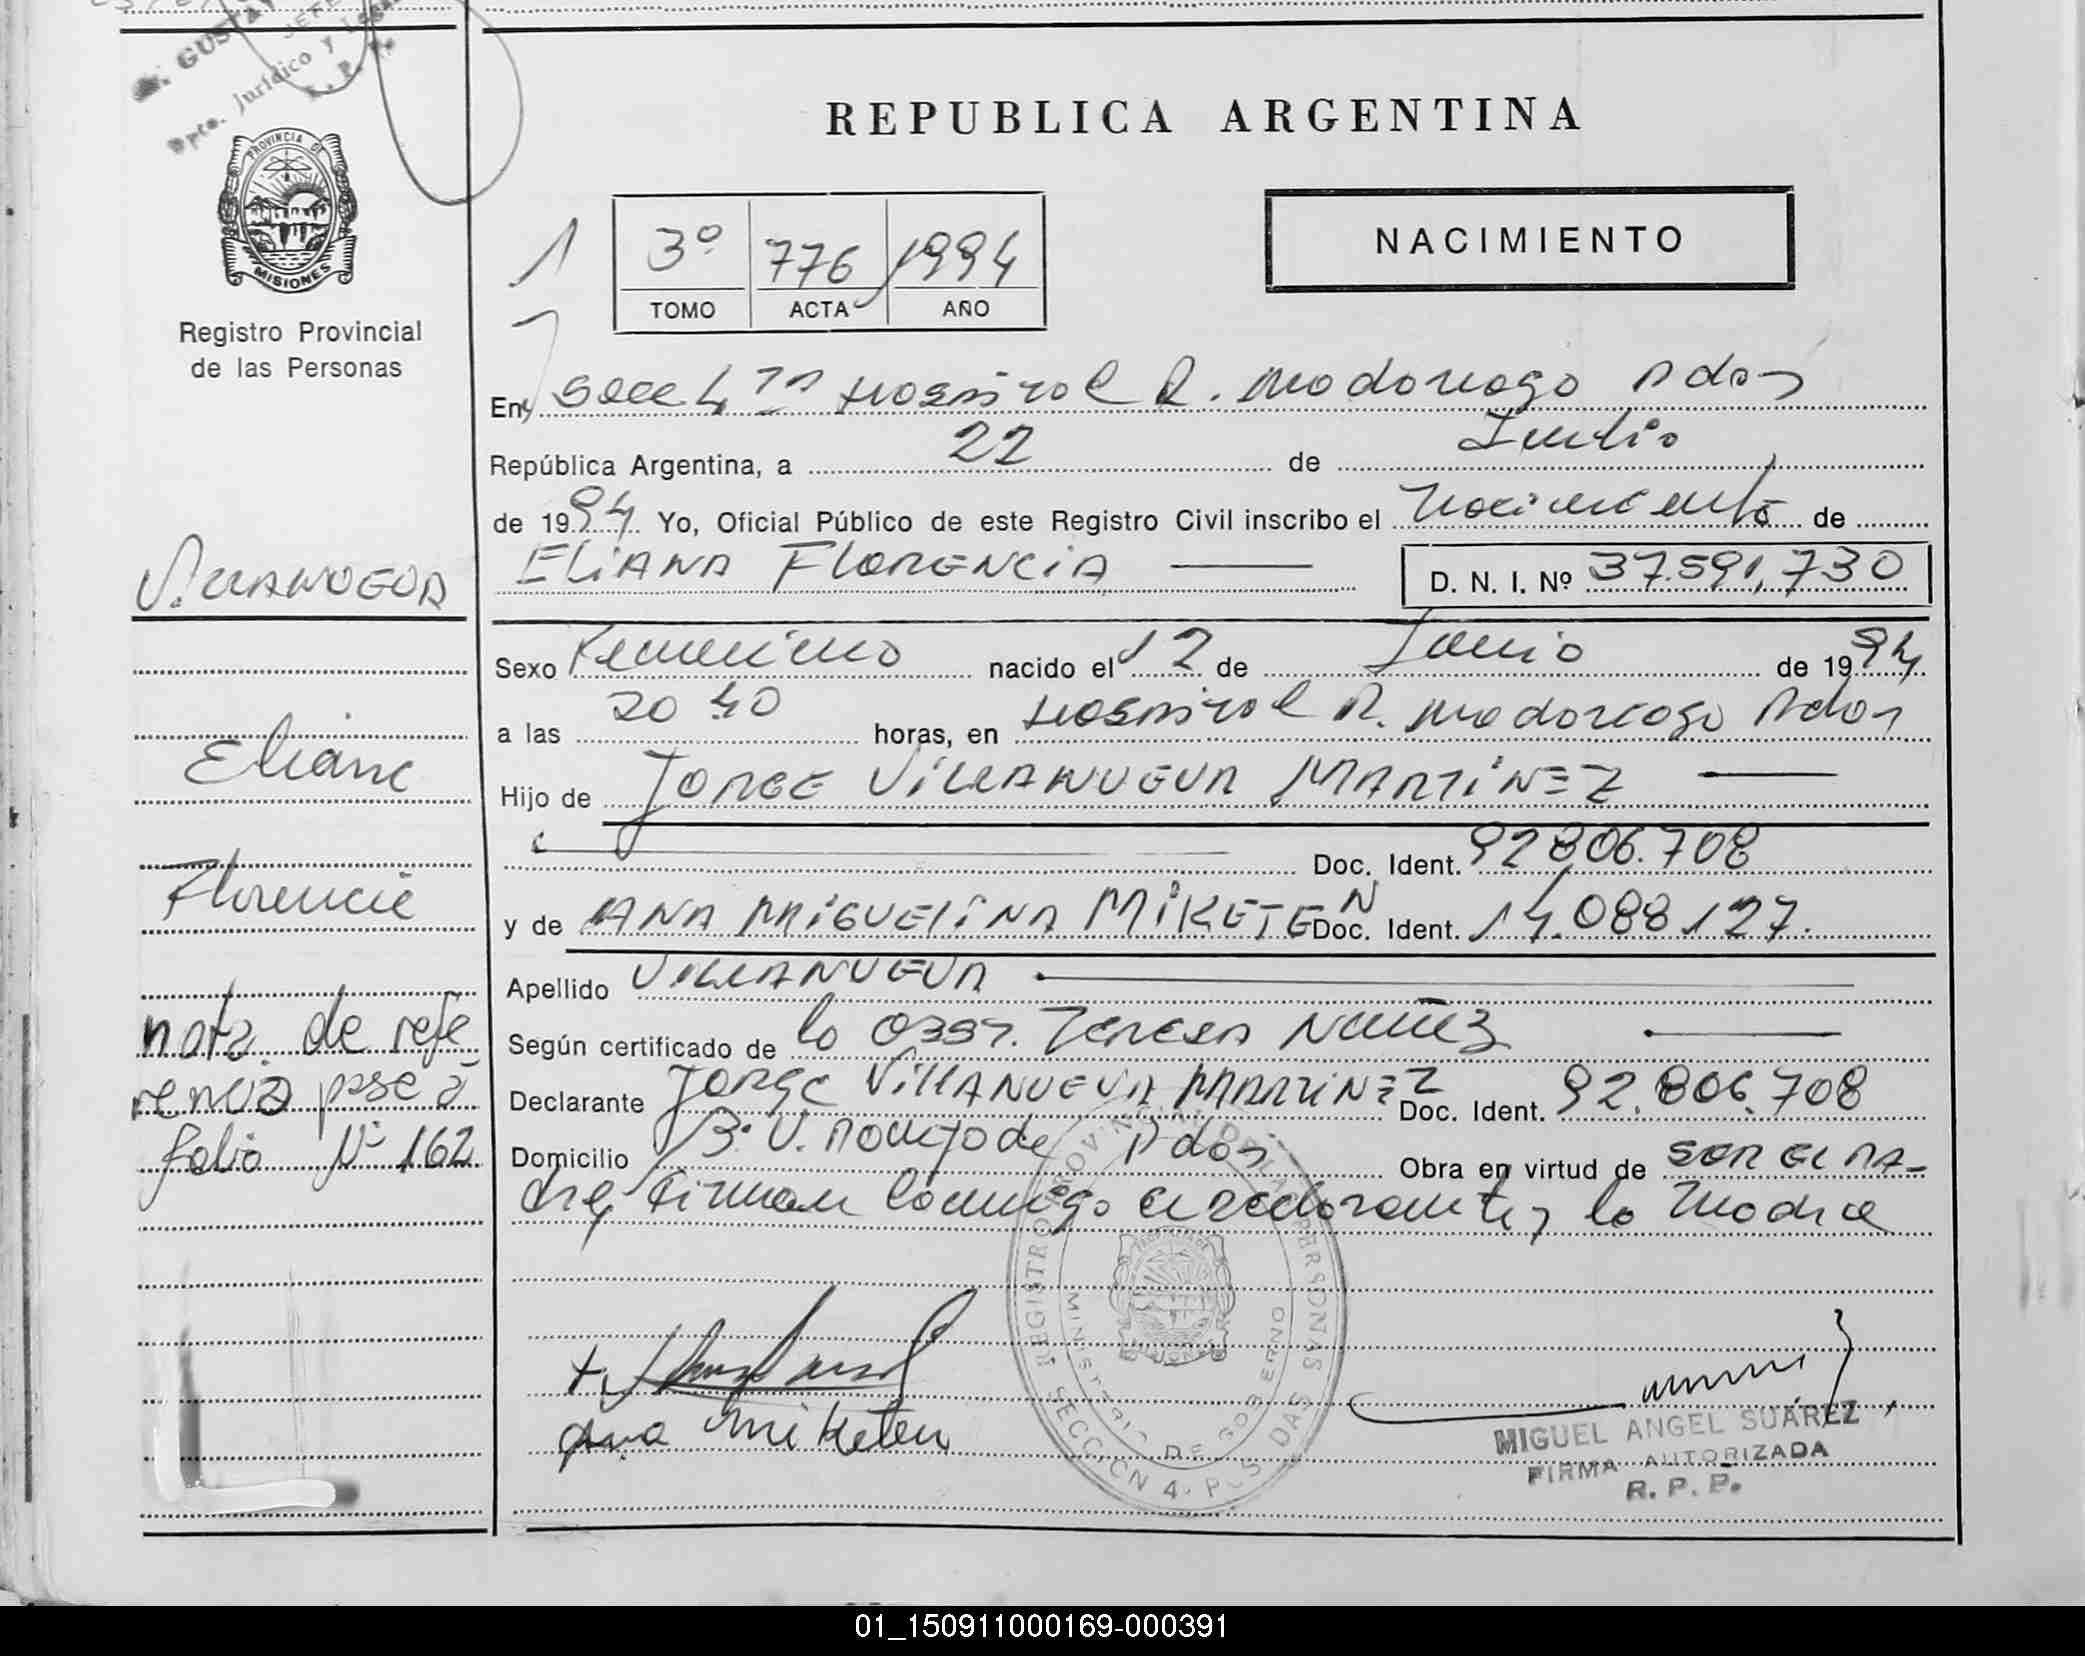 Dr. GUSTA
JEFE
Dpto. Jurídico y Legal
R. P. P.
PROVINCIA DE
MISIONES
Registro Provincial
de las Personas
REPUBLICA ARGENTINA
1
3º 776 1994
TOMO ACTA AÑO
NACIMIENTO
En Secc 4ta Hospital R. Madariaga Pdas
República Argentina, a 22 de Julio
de 1994 Yo, Oficial Público de este Registro Civil inscribo el Nacimiento de
ELIANA FLORENCIA D. N. I. Nº 37.591.730
Sexo Femenino nacido el 12 de Junio de 1994
a las 20 40 horas, en Hospital R. Madariaga Pdas
Hijo de JORGE VILLANUEVA MARTINEZ
Doc. Ident. 92806.708
y de ANA MIGUELINA MIKETEN Doc. Ident. 14.088.127.
Apellido VILLANUEVA
Según certificado de la Obst. Teresa Nuñez
Declarante JORGE VILLANUEVA MARTINEZ Doc. Ident. 92.806.708
Domicilio Bº V. Pdas Obra en virtud de SER EL PA-
dre, Firman conmigo el declarante y la Madre
VILLANUEVA
Eliana
Florencia
nota de refe
rencia pase a
folio Nº 162
Ana Miketen
REGISTRO PROVINCIAL DE LAS PERSONAS
MINISTERIO DE GOBIERNO
SECCION 4. POSADAS
MIGUEL ANGEL SUAREZ
FIRMA AUTORIZADA
R. P. P.
01_150911000169-000391